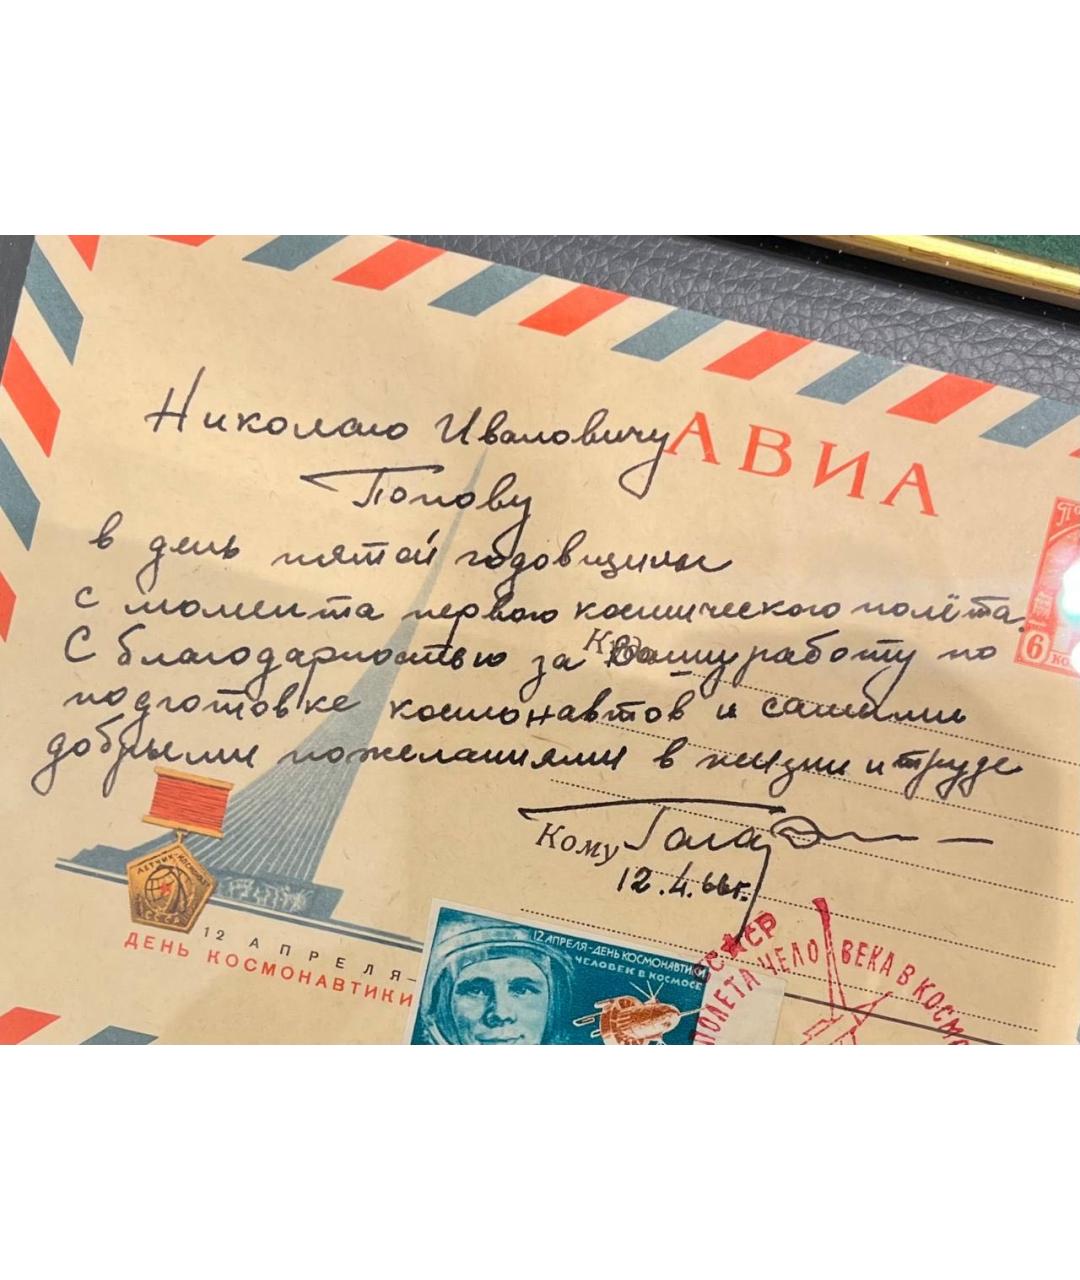 Николаю Ивановичу
АВИА
Попову
в день пятой годовщины
с момента первого космического полёта.
С благодарностью за Вашу работу по
Куда
подготовке космонавтов и самыми
добрыми пожеланиями в жизни и труде
6 ко
Кому
12.4.66г.
ЛЕТЧИК-КОСМОНАВТ
СССР
12 АПРЕЛЯ-
ДЕНЬ КОСМОНАВТИКИ
12 АПРЕЛЯ-ДЕНЬ КОСМОНАВТИКИ
ЧЕЛОВЕК В КОСМОСЕ
СССР
ПОЛЕТА ЧЕЛОВЕКА В КОСМО